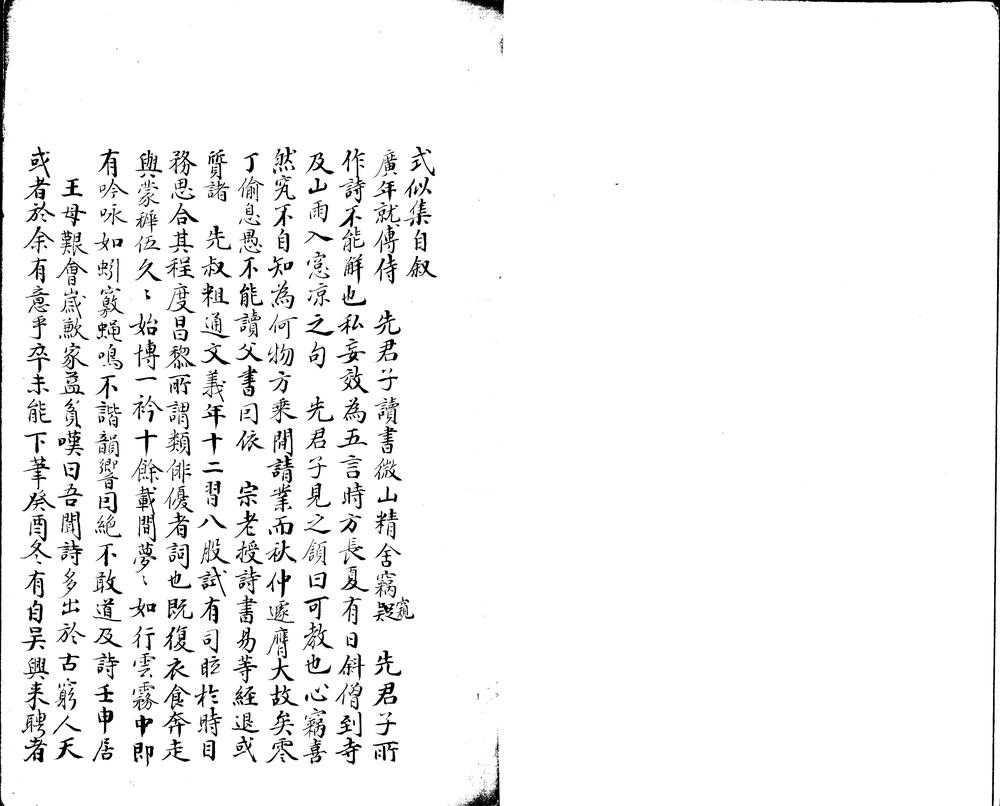 式似集自敘
廣年就傅侍　先君子讀書微山精舍竊窺　先君子所
作詩不能解也私妄效為五言時方長夏有日斜僧到寺
及山雨入窓凉之句　先君子見之頷曰可教也心竊喜
然究不自知為何物方乘間請業而秋仲遽膺大故矣零
丁偷息愚不能讀父書曰依　宗老授詩書易等經退或
質諸　先叔粗通文義年十二習八股試有司眩於時目
務思合其程度昌黎所謂類俳優者詞也既復衣食奔走
與蒙稺伍久〻始博一衿十餘載間夢〻如行雲霧中即
有吟咏如蚓竅蠅鳴不諧韻響曰絕不敢道及詩壬申居
王母艱會歲歉家益貧嘆曰吾聞詩多出於古窮人天
或者於余有意乎卒未能下筆癸酉冬有自吴興来聘者